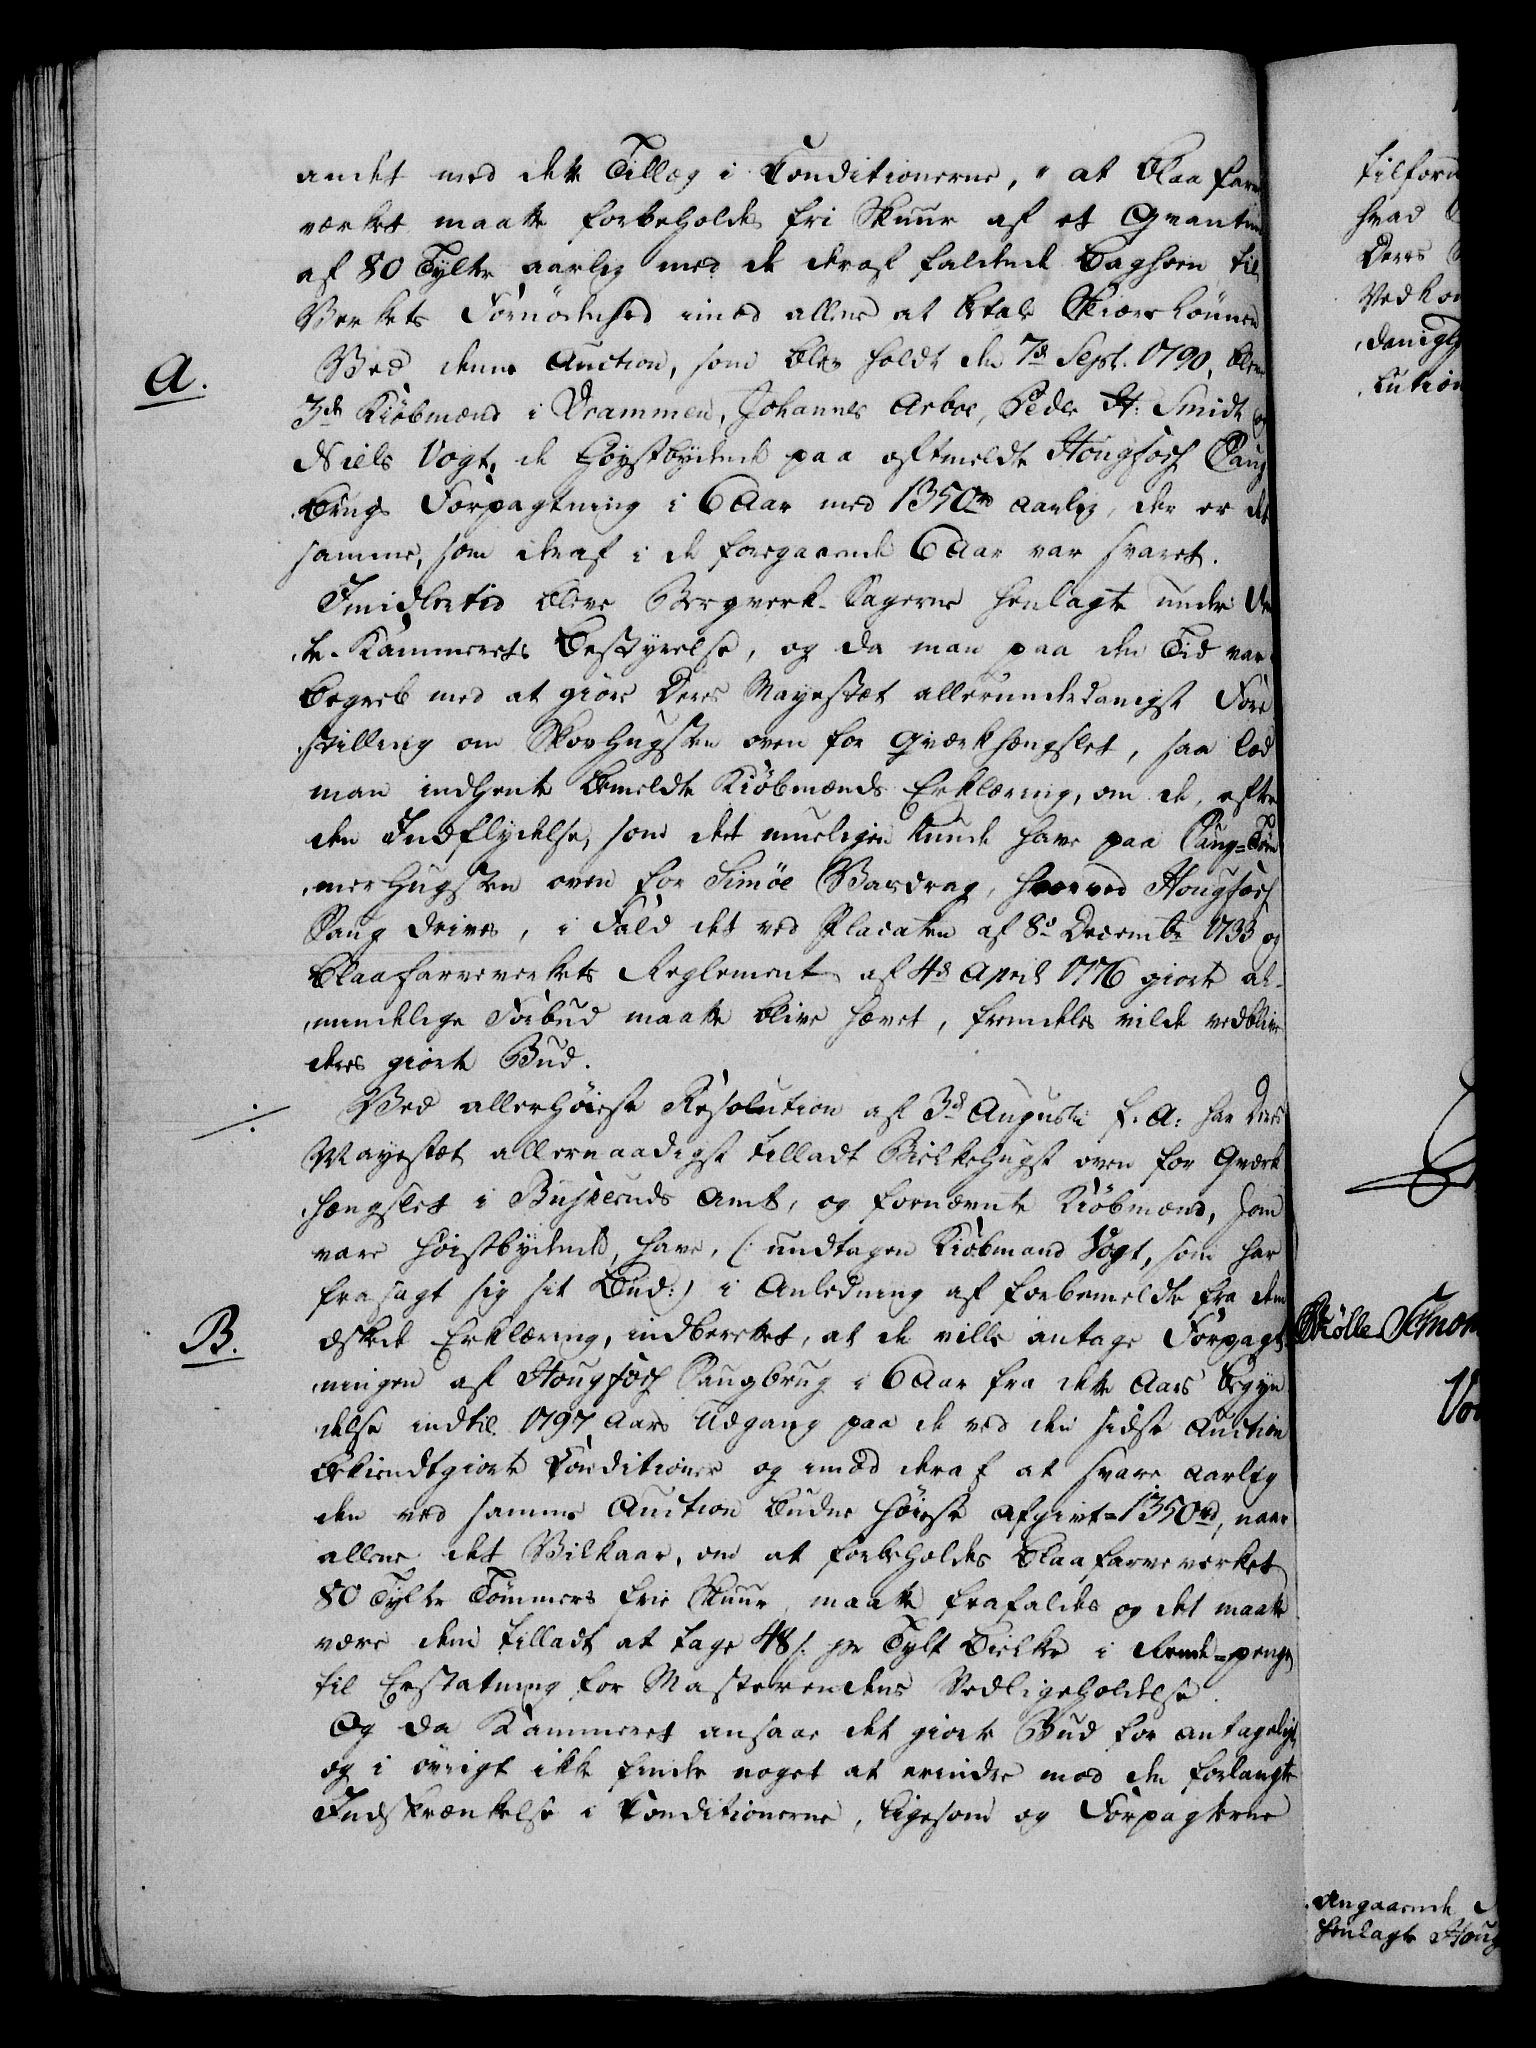 andet med dette Tillæg i Conditionerne, "at Blaafarve
værket maatte forbeholdes fri Skuur af et Qvantum
af 80 Tylter aarlig med de deraf faldende Baghoen til
Verkets Fornødenhed imod allene at betale Skiærslønnen
A.
Ved denne Auction, som blev holdt den 7de Sept. 1790, bleve
3de Kiøbmænd i Drammen, Johannes Arboe, Peder H: Smidt og
Niels Vogt, de Høystbydende paa oftmeldte Hougfoss Saug
brugs Forpagtning i 6 Aar med 1350 rd aarlig, der er det
samme, som deraf i de foregaaende 6 Aar var svaret.
Imidlertid bleve Bergverk-Sagerne henlagte under Det
te Kammerets Bestyrelse, og da man paa den Tid var
begreb med at giøre Deres Mayestæt allerunderdanigst Fore
stilling om Skovhugsten oven for Qværkhængslet, saa lod
man indhente bemeldte Kiøbmænds Erklæring, om de, efter
den Indflydelse, som det mueligen kunde have paa Saug-Tøm
merhugsten oven for Simøe Vasdrag, hvorved Hougfoss
Saug drives, i Fald det ved Placaten af 8de Decembr 1733 og
Blaafarveverkets Reglement af 4de April 1776 giorte al-
mindelige Forbud maatte blive hævet, fremdeles vilde vedblive
deres giorte Bud.
Ved allerhøieste Resolution af 3de Augusti f. A: har Deres
Mayestæt allernaadigst tilladt Bielkehugst oven for Qværk
hængslet i Buskeruds Amt, og fornævnte Kiøbmænd, som
vare høistbydende, have, (: undtagen Kiøbmand Vogt, som har
frasagt sig sit Bud:) i Anledning af forbemeldte fra dem
B.
æskede Erklæring, indberettet, at de ville antage Forpagt
ningen af Hougfoss Saugbrug i 6 Aar fra dette Aars Begyn
delse indtil 1797 Aars Udgang paa de ved den sidste Auction
bekiendtgiorte Conditioner og imod deraf at svare aarlig
den ved samme Auction budne høieste Afgivt=1350 rd, naar
allene det Vilkaar, om at forbeholdes Blaafarveverket
80 Tylter Tømmers frie Skuur, maatte frafaldes og det maatte
være dem tilladt at tage 48 s. pr Tylt Bielker i Rende=penge
til Erstatning for Masterendens Vedligeholdelse.
Og da Kammeret ansaae det giorte Bud for antageligt,
og i øvrigt ikke finder noget at erindre mod den forlangte
Indskrænkelse i Conditionerne, ligesom og Forpagterne
hvad
Deres
Angaaende
henlagte Houg